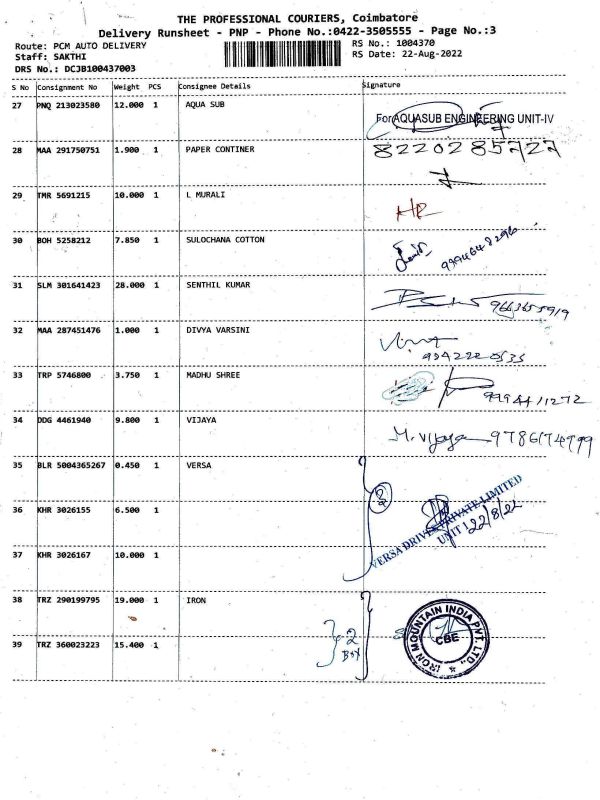 THE PROFESSIONAL COURIERS, Coimbatore
Delivery Runsheet - PNP - Phone No.:0422-3505555 - Page No.:3
Route: PCM AUTO DELIVERY RS No.: 1004370
Staff: SAKTHI RS Date: 22-Aug-2022
DRS No.: DCJB100437003
S No Consignment No Weight PCS Consignee Details Signature
27 PNQ 213023580 12.000 1 AQUA SUB
For AQUASUB ENGINEERING UNIT-IV
28 MAA 291750751 1.900 1 PAPER CONTINER 8220285727
29 TMR 5691215 10.000 1 L MURALI
30 BOH 5258212 7.850 1 SULOCHANA COTTON 9994648296
31 SLM 301641423 28.000 1 SENTHIL KUMAR
9663655919
32 MAA 287451476 1.000 1 DIVYA VARSINI
9942220535
33 TRP 5746800 3.750 1 MADHU SHREE
9994411272
34 DDG 4461940 9.800 1 VIJAYA
M. Vijaya 9786174799
35 BLR 5004365267 0.450 1 VERSA
36 KHR 3026155 6.500 1
VERSA DRIVES PRIVATE LIMITED
UNIT 1 22/8/22
37 KHR 3026167 10.000 1
38 TRZ 290199795 19.000 1 IRON
IRON MOUNTAIN INDIA PVT. LTD.,
CBE
2
Box
39 TRZ 360023223 15.400 1